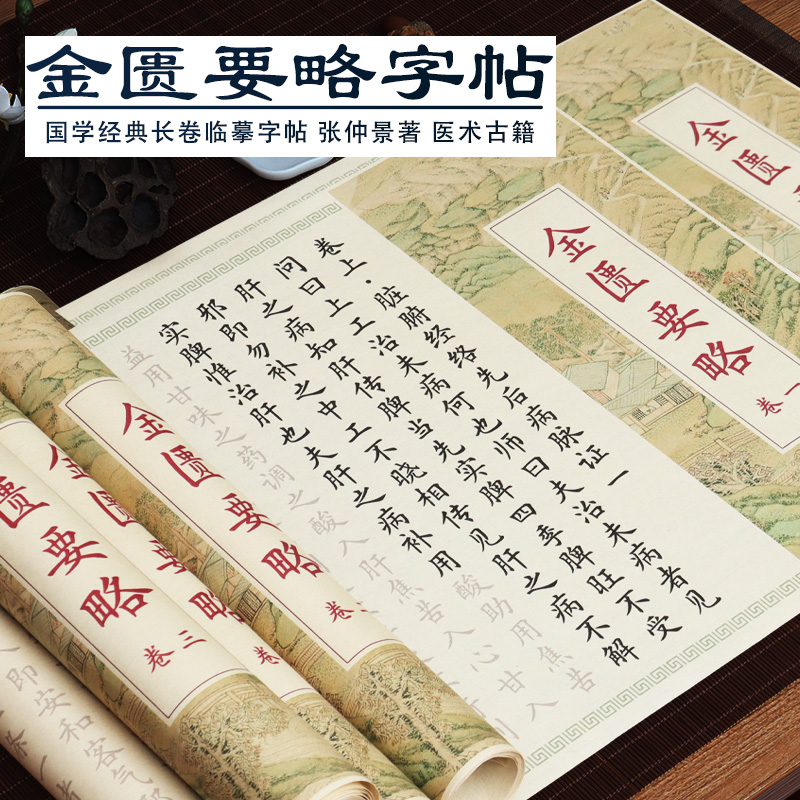 金匮要略字帖
国学经典长卷临摹字帖 张仲景著 医术古籍
金匮
金匮要略
卷一
卷上·脏腑经络先后病脉证一
问曰上工治未病何也师曰夫治未病者见
肝之病知肝传脾当先实脾四季脾旺不受
邪即勿补之中工不晓相传见肝之病不解
实脾惟治肝也夫肝之病补用酸助用焦苦
益用甘味之药调之酸入肝焦苦入心甘入
金匮要略
卷
金
略
卷
匮要略
卷三
即安和客气邪